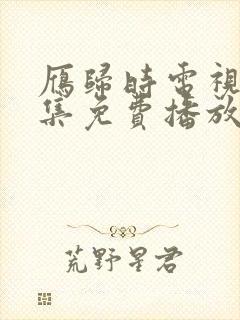 雁歸時電視
集免費播放
荒野星君